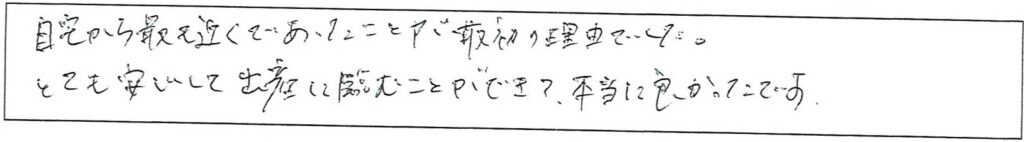 自宅から最も近くであったことが最初の理由でした。
とても安心して出産に臨むことができて、本当に良かったです.